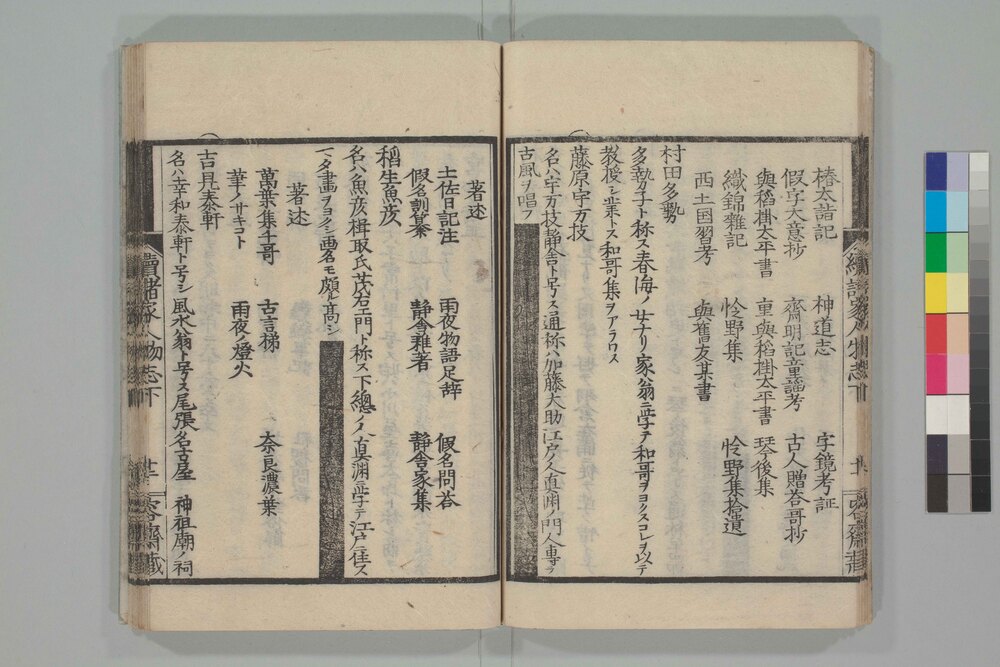 椿太詣記　神道志　字鏡考証
假字大意抄　齋明記童謡考　古人贈答哥抄
與稻掛太平書　重與稻掛太平書　琴後集
織錦雜記　怜野集　怜野集拾遺
西土国習考　與舊友某書
村田多勢
多勢子ト称ス春海ノ女ナリ家翁ニ学テ和哥ヲヨクスコレヲ以テ
教授シ業トス和哥集ヲアラハス
藤原宇万技
名ハ宇万技静舎ト号ス通称ハ加藤大助江戸ノ人真渕ノ門人専ラ
古風ヲ唱フ
著述
土佐日記注　雨夜物語足辞　假名問答
假名訓纂　静舎雅著　静舎家集
稻生魚彦
名ハ魚彦楫取氏茂右エ門ト称ス下總ノ人真渊ニ学テ江戸ニ住ス
マタ畫ヲヨクシ画名モ頗ル高シ
著述
萬葉集千哥　古言梯　奈良濃葉
筆ノサキコト　雨夜ノ燈火
吉見泰軒
名ハ幸和泰軒ト号シ風水翁ト号ス尾張名古屋 神祖廟ノ祠
續諸家人物志下